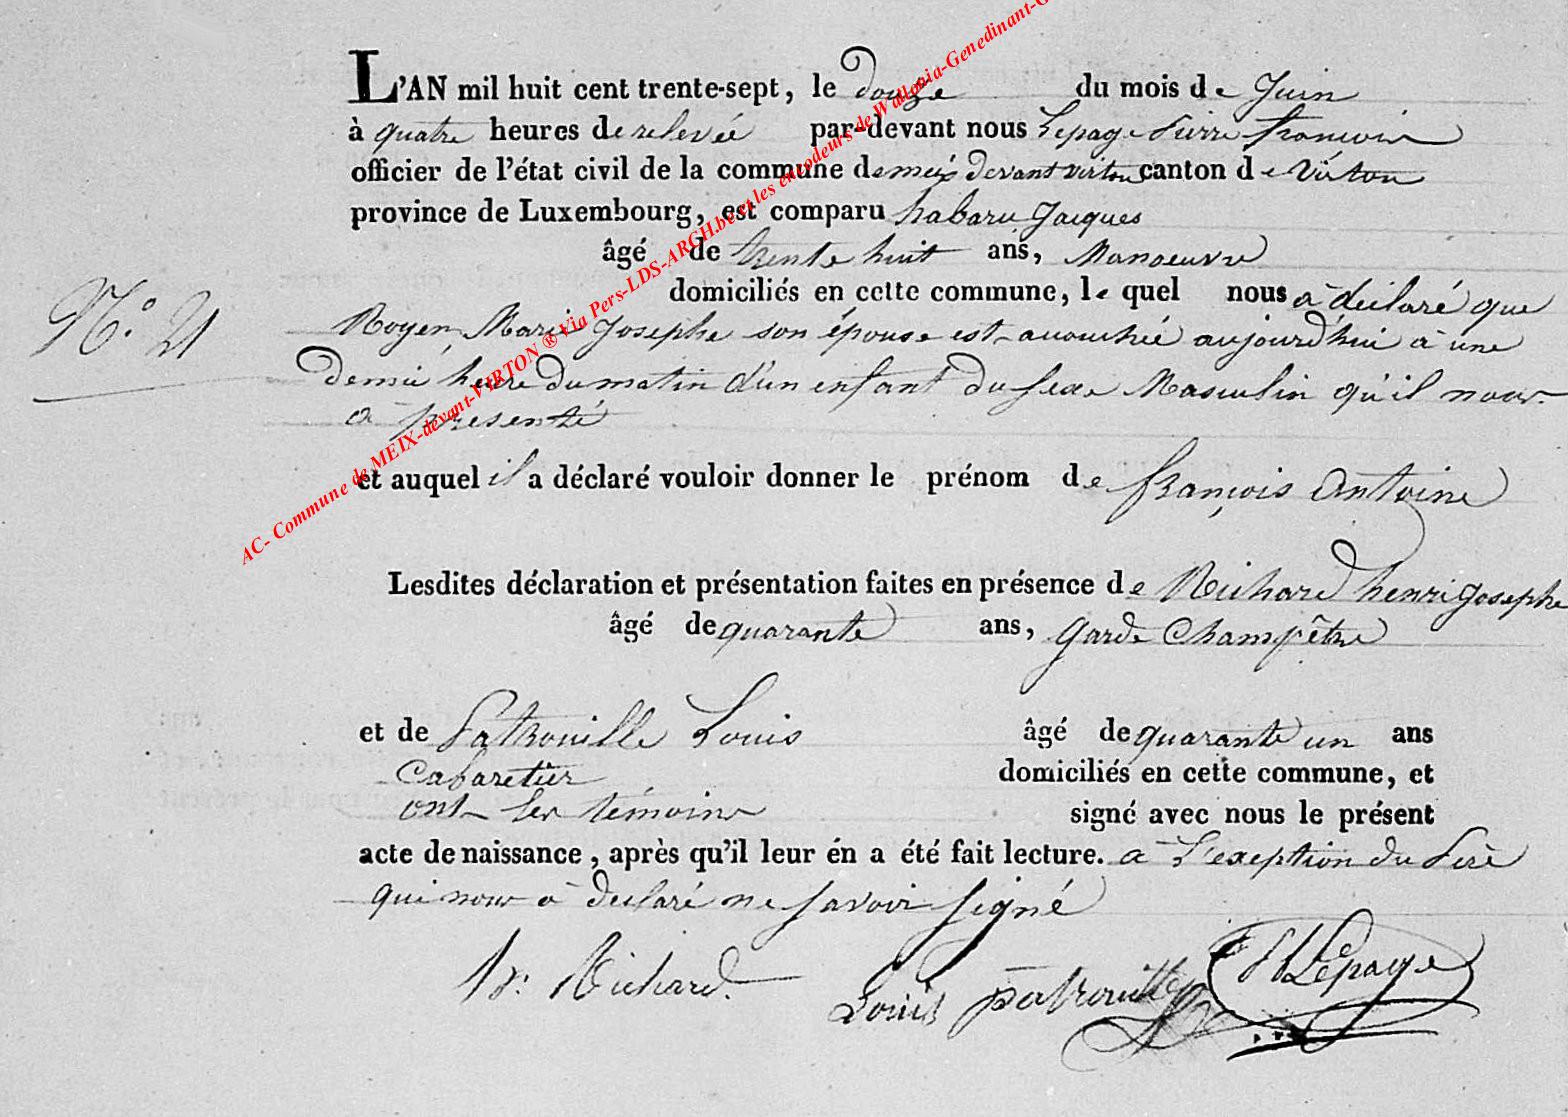 L'AN mil huit cent trente-sept, le douze du mois de Juin
à quatre heures de relevée par-devant nous Lepage Pierre françois
officier de l'état civil de la commune de meix devant virton canton de Virton
province de Luxembourg, est comparu habaru Jacques
âgé de trente huit ans, Manoeuvre
domiciliés en cette commune, le quel nous à déclaré que
N.° 21
Royen Marie Josephe son épouse est accouchée aujourd'hui à une
demie heure du matin d'un enfant du sexe Masculin qu'il nous
a présenté
et auquel il a déclaré vouloir donner le prénom de françois Antoine
Lesdites déclaration et présentation faites en présence de Richard henri Josephe
âgé de quarante ans, Garde Champêtre
et de Patrouille Louis âgé de quarante un ans
Cabaretier domiciliés en cette commune, et
ont les témoins signé avec nous le présent
acte de naissance, après qu'il leur én a été fait lecture. a L'exeption du Père
qui nous à déclaré ne savoir signé
hr. Richard.
Louis patrouille
Lepage
AC- Commune de MEIX-devant-VIRTON ® Via Pers-LDS-ARCH.be et les encodeurs de Wallonia-Genedinant-G